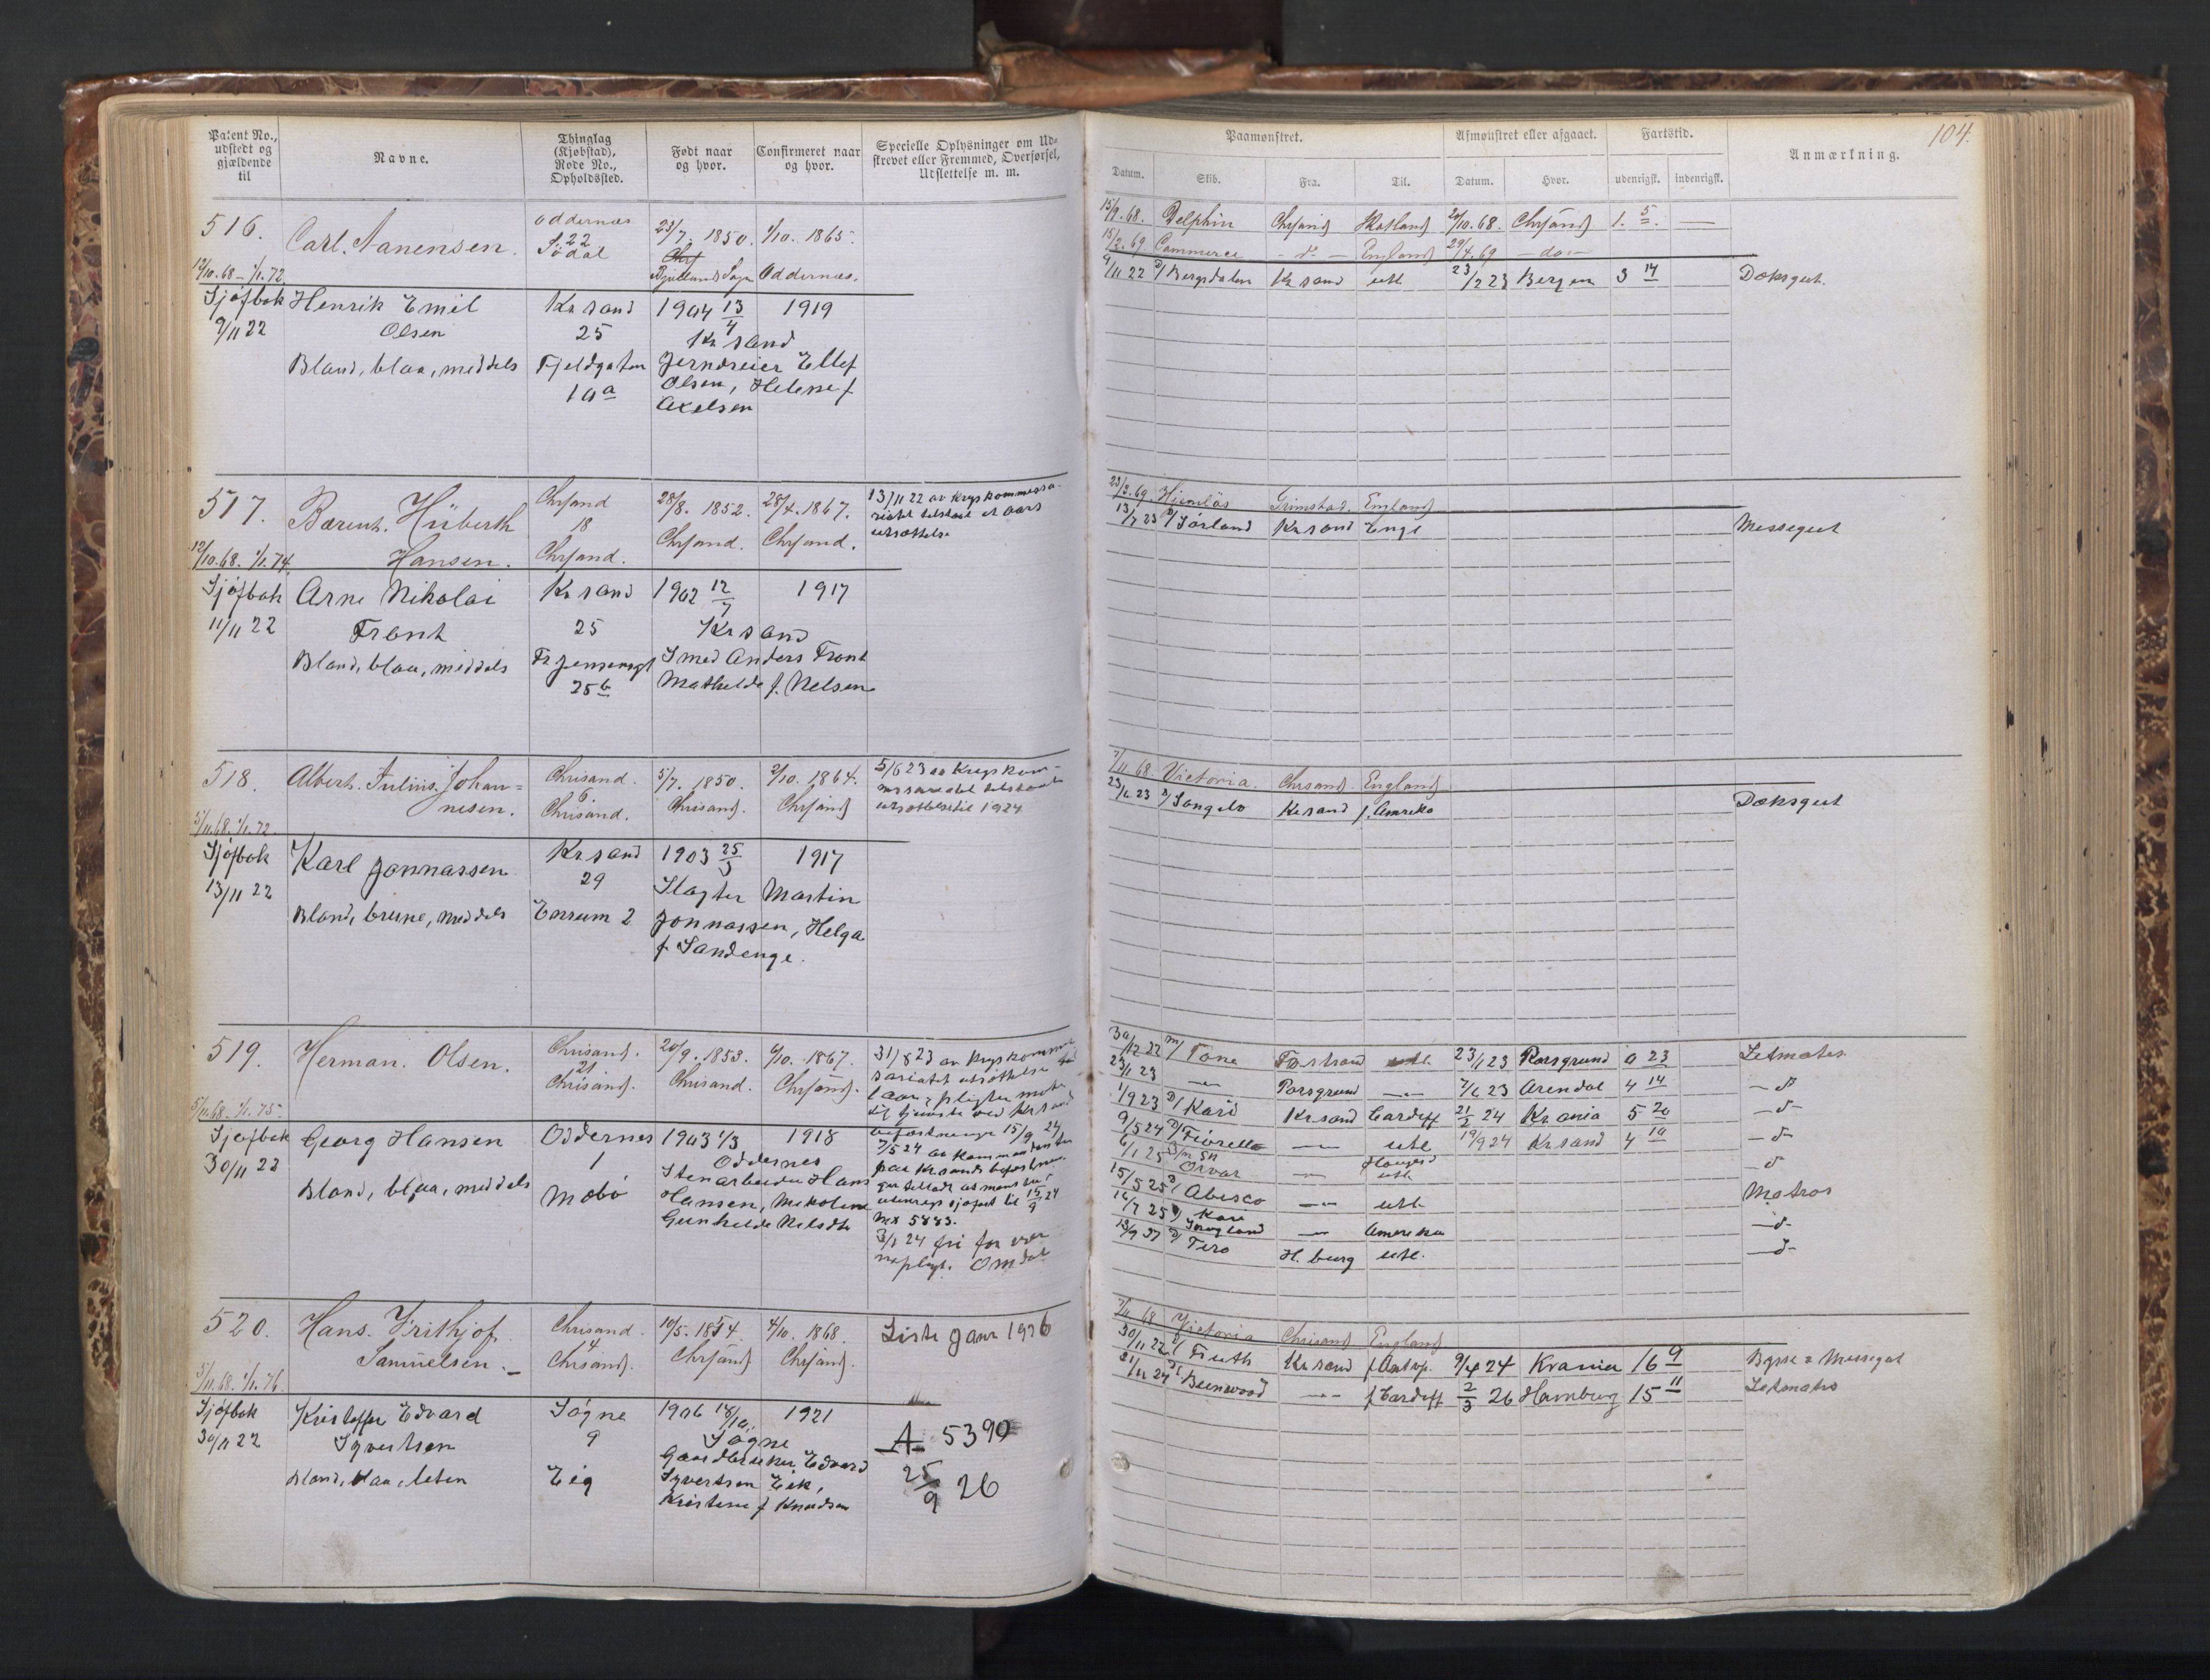 Patent No., udstedt og gjældende til
Navne.
Thinglag (Kjøbstad), Rode No., Opholdssted.
Født naar og hvor.
Confirmeret naar og hvor.
Specielle Oplysninger om Udskrevet eller Fremmed, Overførsel, Udslettelse m. m.
Paamønstret.
Afmønstret eller afgaaet.
Fartstid.
Anmærkning.
104.
Datum. Skib. Fra. Til. Datum. Hvor. udenrigsk. indenrigsk.
516. Carl. Aanensen. Oddernæs 22 Sødal 23/7. 1850. 1/10. 1865. Oddernæs.
12/10.68 – 1/1.72
15/9.68. Delphin Chrsand Skotland 20/10.68. Chrsand 1. 5
15/2.69 Commerce – do – England 29/4.69 – do –
9/11 22 D/ Bergsdalen Kr sand utl 23/2 23 Bergen 3 14 Dæksgut.
Sjøfbok Henrik Emil Kr sand 1904 13/4 1919
9/11 22 Olsen 25 Kr sand
Bland, blaa, middels Fjeldgaten Jerndreier Ellef
10 a Olsen, Helene f.
Axelsen
517. Bærent. Hüberth Hansen. Chrsand 18 Chrsand. 28/8. 1852. Chrsand. 28/4. 1867. Chrsand.
13/11 22 av Krigskommissa-
riatet tilstaat et aars
utsættelse
12/10.68. 1/1.74.
23/2.69. Hjemløs Grimstad. England
13/7 23 D/ Sørland Kr sand Engl Messegut
Sjøfbok Arne Nikolai Kr sand 1902 12/7 1917
11/11 22 Front 25 Kr sand
Bland, blaa, middels Smed Anders Front
25 b Mathilde f. Nelsen
518. Albert. Julius. Johan=
nesen. Chrisand. 6 Chrisand. 5/7. 1850. Chrisand. 2/10. 1864. Chrsand
5/6 23 av Krigskom-
missariatet tilstaat
utsættelse til 1924
5/11.68. 1/1.72.
7/11 68. Victoria. Chrsand. England
23/6 23 D/ Songelv Kr sand f. Amerika Dæksgut
Sjøfbok Karl Jonnassen Kr sand 1903 25/3 1917
13/11 22 29 Slagter Martin
Bland, brune, middels Enrum 2 Jonnassen, Helga
f. Sandenge.
519. Herman. Olsen. Chrisand. 21 Chrisand. 20/9. 1853. Chrisand. 6/10. 1867. Chrsand.
5/11.68. 1/1.75.
31/8 23 av Krigskommis
sariatet utsættelse
1 aar, pligter møte
til tjeneste ved Kr sands
befæstninger 15/9 24
7/5 24 av Kommandanten
paa Kr sands befæstnin
ger tilladt at mønstre i
utenrigs sjøfart til 15/9 24
3/1 24 fri for ver
nepligt.
30/12 22 M/ Tone Fevik utl. 23/1 23 Porsgrund 0 23 Letmatros
23/1 23 — Porsgrund — 7/6 23 Arendal 4 14 – d–
1/9 23 D/ Kari Kr sand Cardiff 21/2 24 Kr ania 5 20 – d–
9/5 24 D/ Fiorella — utl 19/9 24 Kr sand 4 10 – d–
6/1 25 Orvar — utl. – d–
15/5 25 D/ Abisco — utl. Matros
Amerika – d–
13/9 27 D/ Tero H. burg utl. – d–
Sjøfbok Georg Hansen Oddernes 1903 1/3 1918
30/11 22 1 Oddernes
Bland, blaa, middels Møbø Stenarbeider Hans
Hansen, Nikoline
Gunhilde
520. Hans. Frithjof.
Samuelsen. Chrisand. 4 Chrisand. 10/5. 1854. Chrsand 4/10. 1868. Chrsand.
5/11.68. 1/1.76.
Liste g anr 1926
7/11 68 Victoria Chrisand England
30/11 22 D/ Ruth Kr sand f Antvp. 9/4 24 Krania 16 9 Bysse & Messegut
21/11 24 D/ Beenwood — f Cardiff 2/3 26 Hamburg 15 11 Letmatros
Sjøfbok Kristoffer Edvard Søgne 1906 18/10 1921
30/11 22 Syvertsen 9 Søgne
Bland, blaa, liten Eig Gaardbruker Edvard
Syvertsen Eik,
Kristine f Knudsen
A 5390
25/9 26